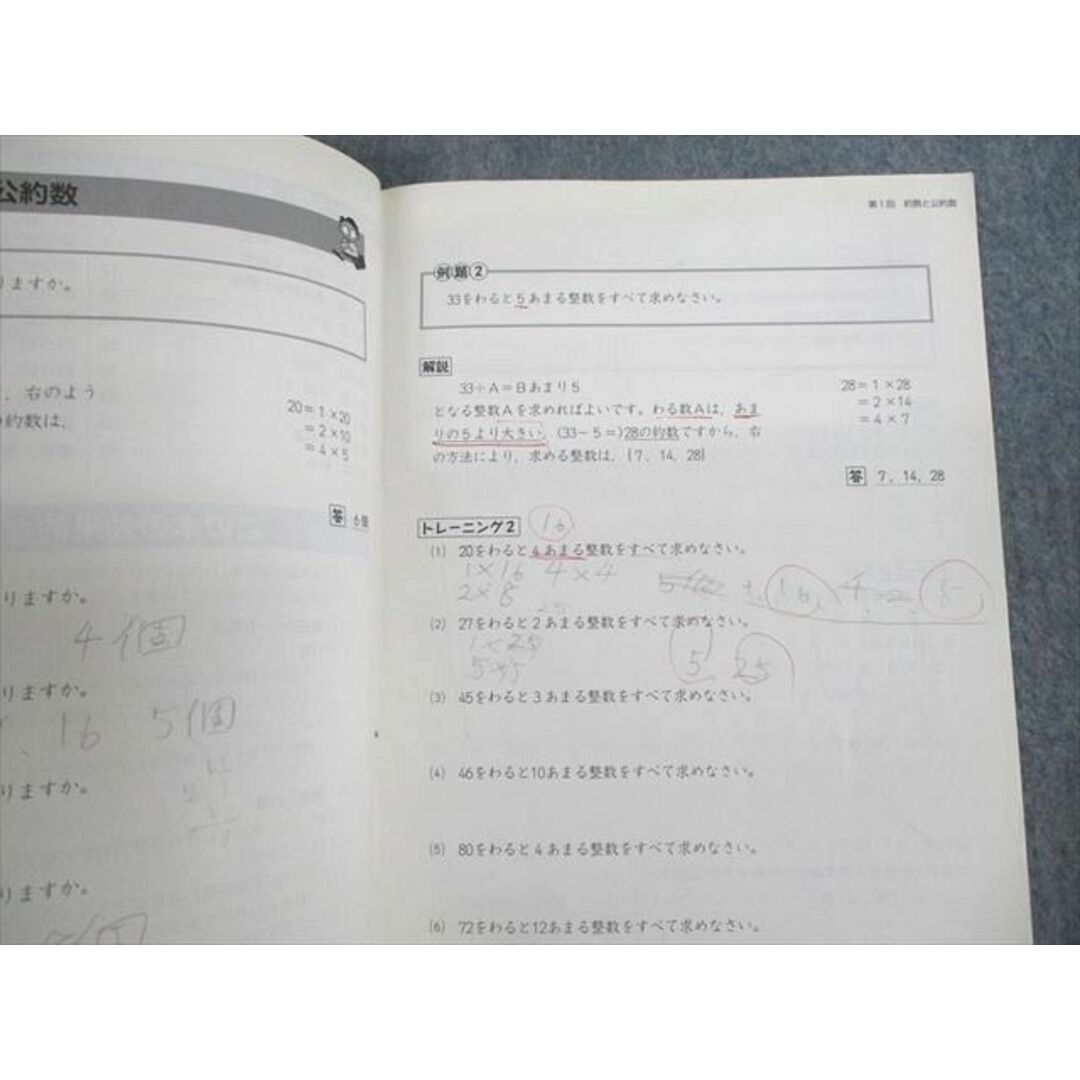 公約数
りますか。
、右のよう
約数は、
20=1×20
=2×10
=4×5
答 6個
りますか。
4個
りますか。
16 5個
りますか。
りますか。
第1回 約数と公約数
例題②
33をわると5あまる整数をすべて求めなさい。
解説
33÷A=Bあまり5
となる整数Aを求めればよいです。わる数Aは、あま
りの5より大きい、(33-5=)28の約数ですから、右
の方法により、求める整数は、{7、14、28}
28=1×28
=2×14
=4×7
答 7、14、28
トレーニング2 16
(1) 20をわると4あまる整数をすべて求めなさい。
1×16 4×4
2×8
16、 8
(2) 27をわると2あまる整数をすべて求めなさい。
1×25
5×5
5 25
(3) 45をわると3あまる整数をすべて求めなさい。
(4) 46をわると10あまる整数をすべて求めなさい。
(5) 80をわると4あまる整数をすべて求めなさい。
(6) 72をわると12あまる整数をすべて求めなさい。